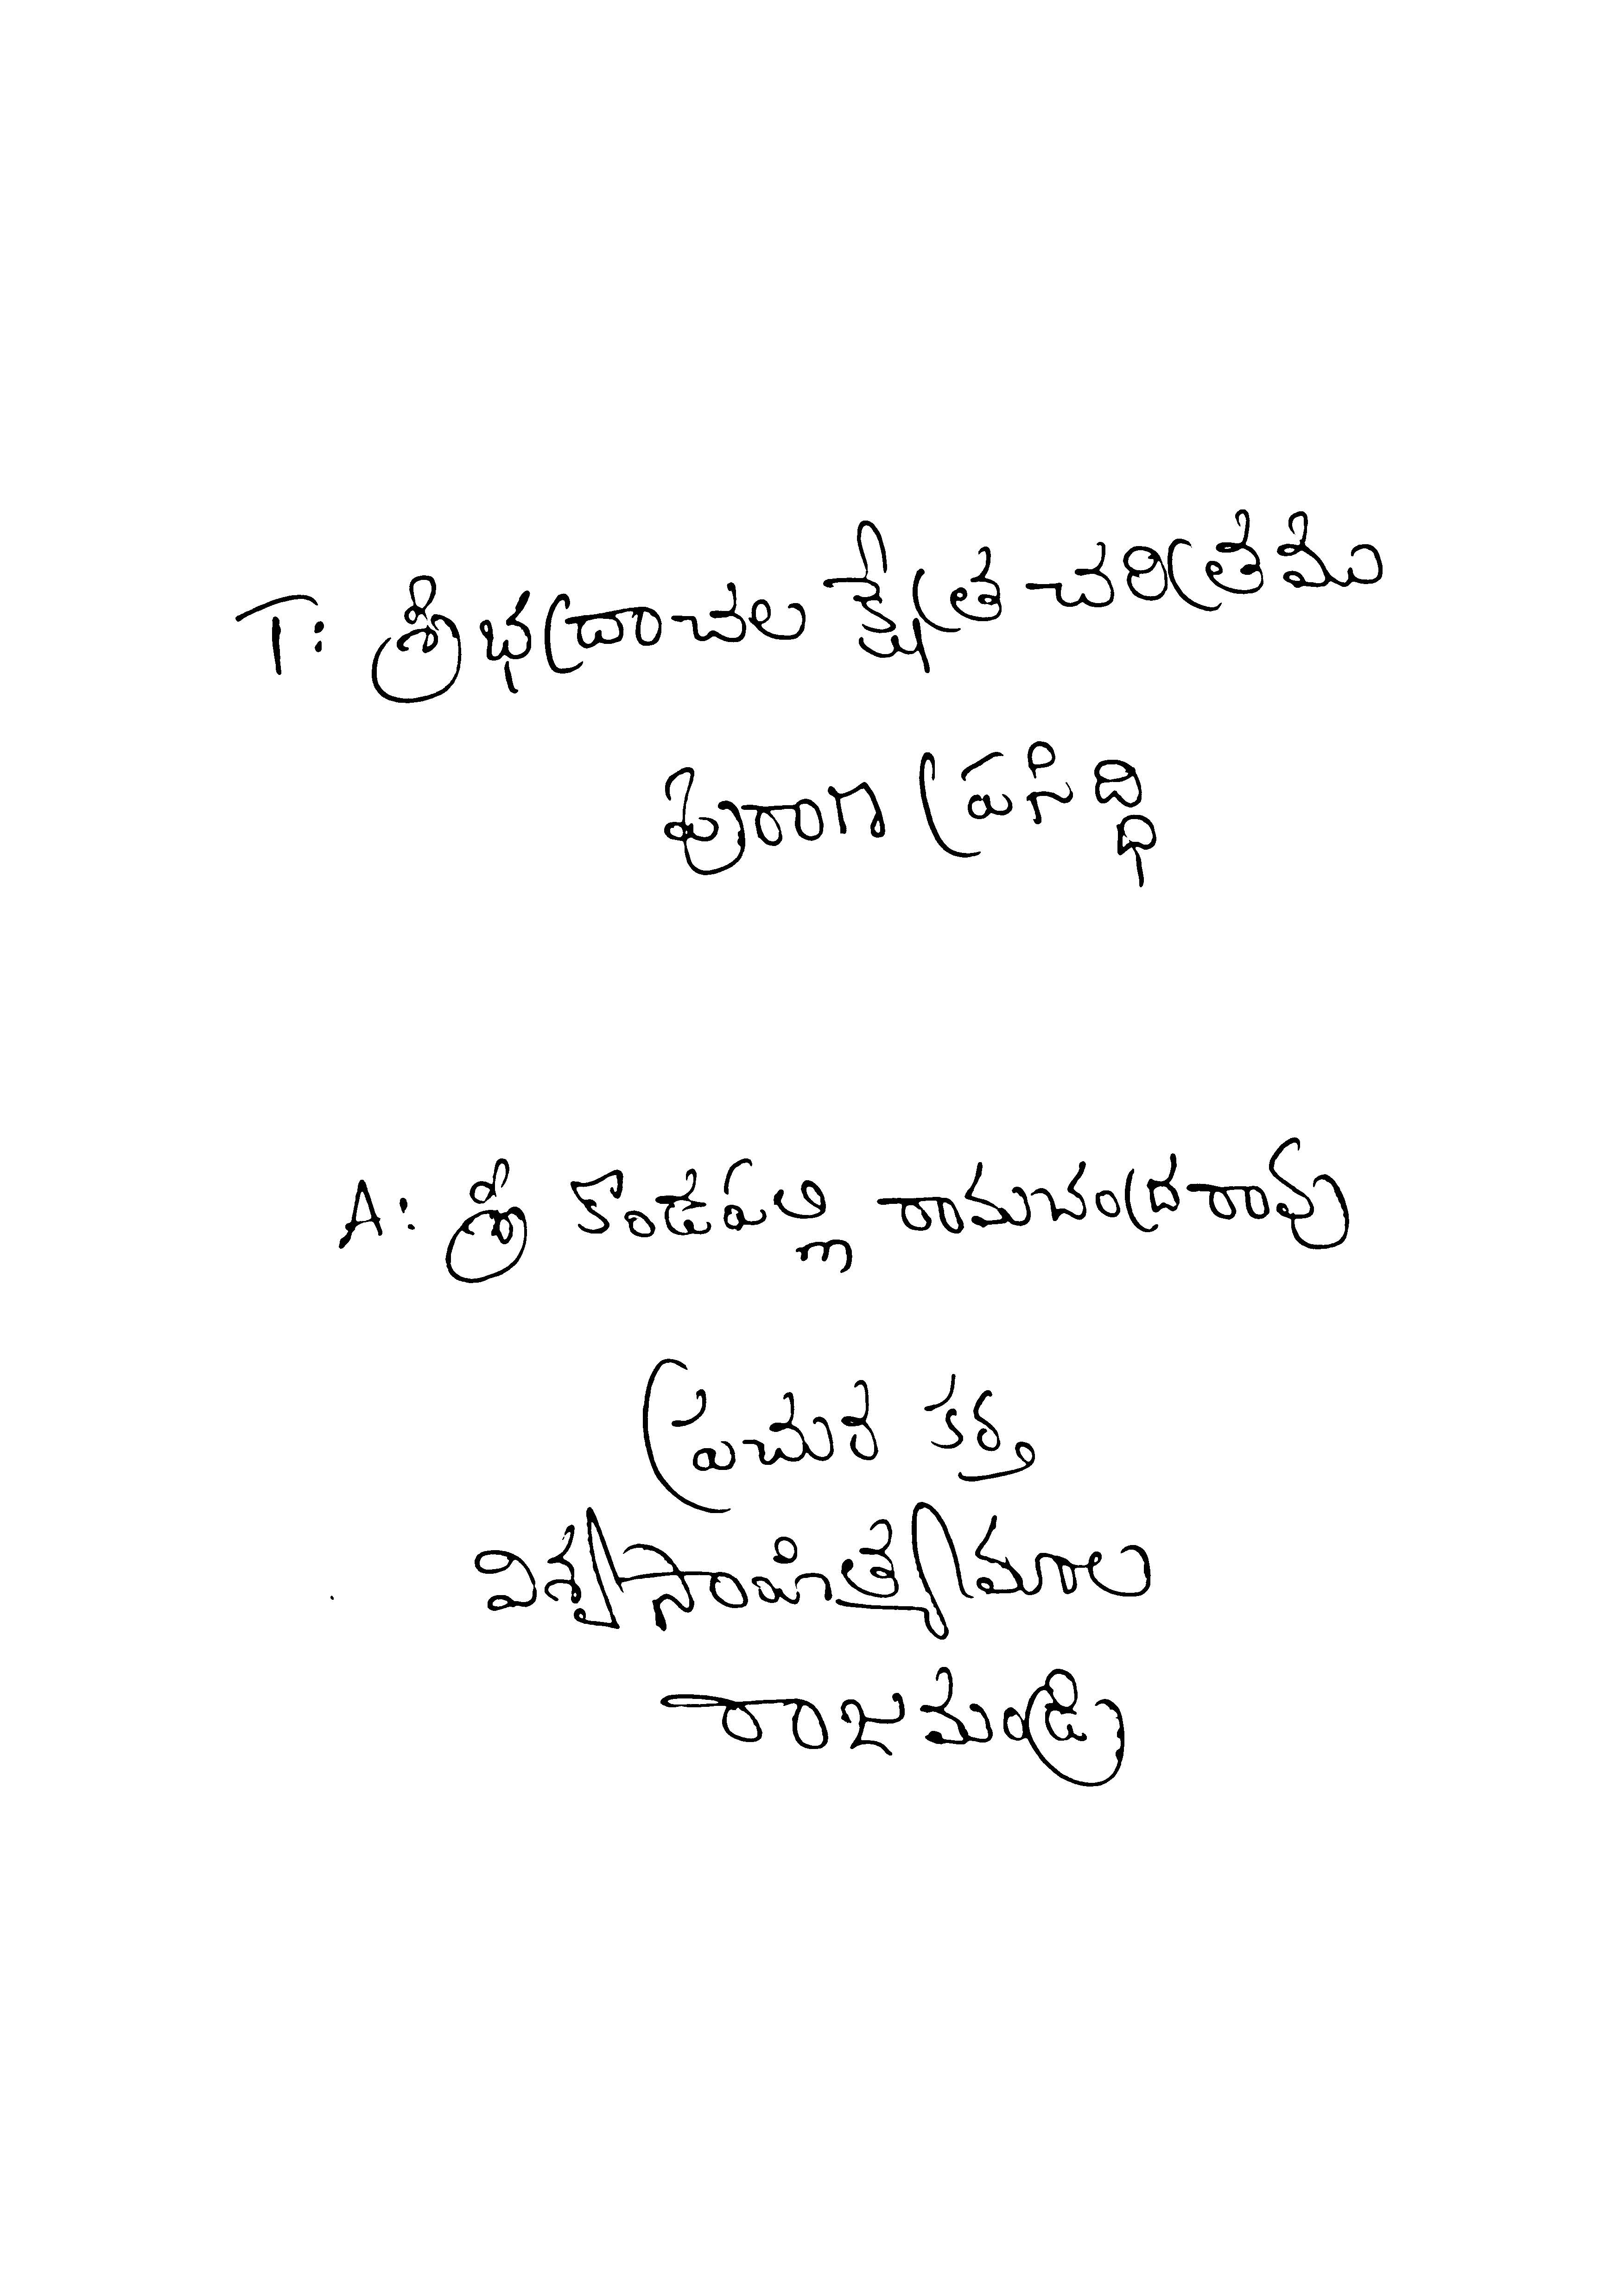 T: శ్రీ భద్రాచల క్షేత్ర చరిత్రము
పురాణ ప్రసిద్ధి
A: శ్రీ కొండపల్లి రామచంద్రరావు
ప్రచురణ కర్త
విశ్వసాహిత్యమాల
రాజమండ్రి